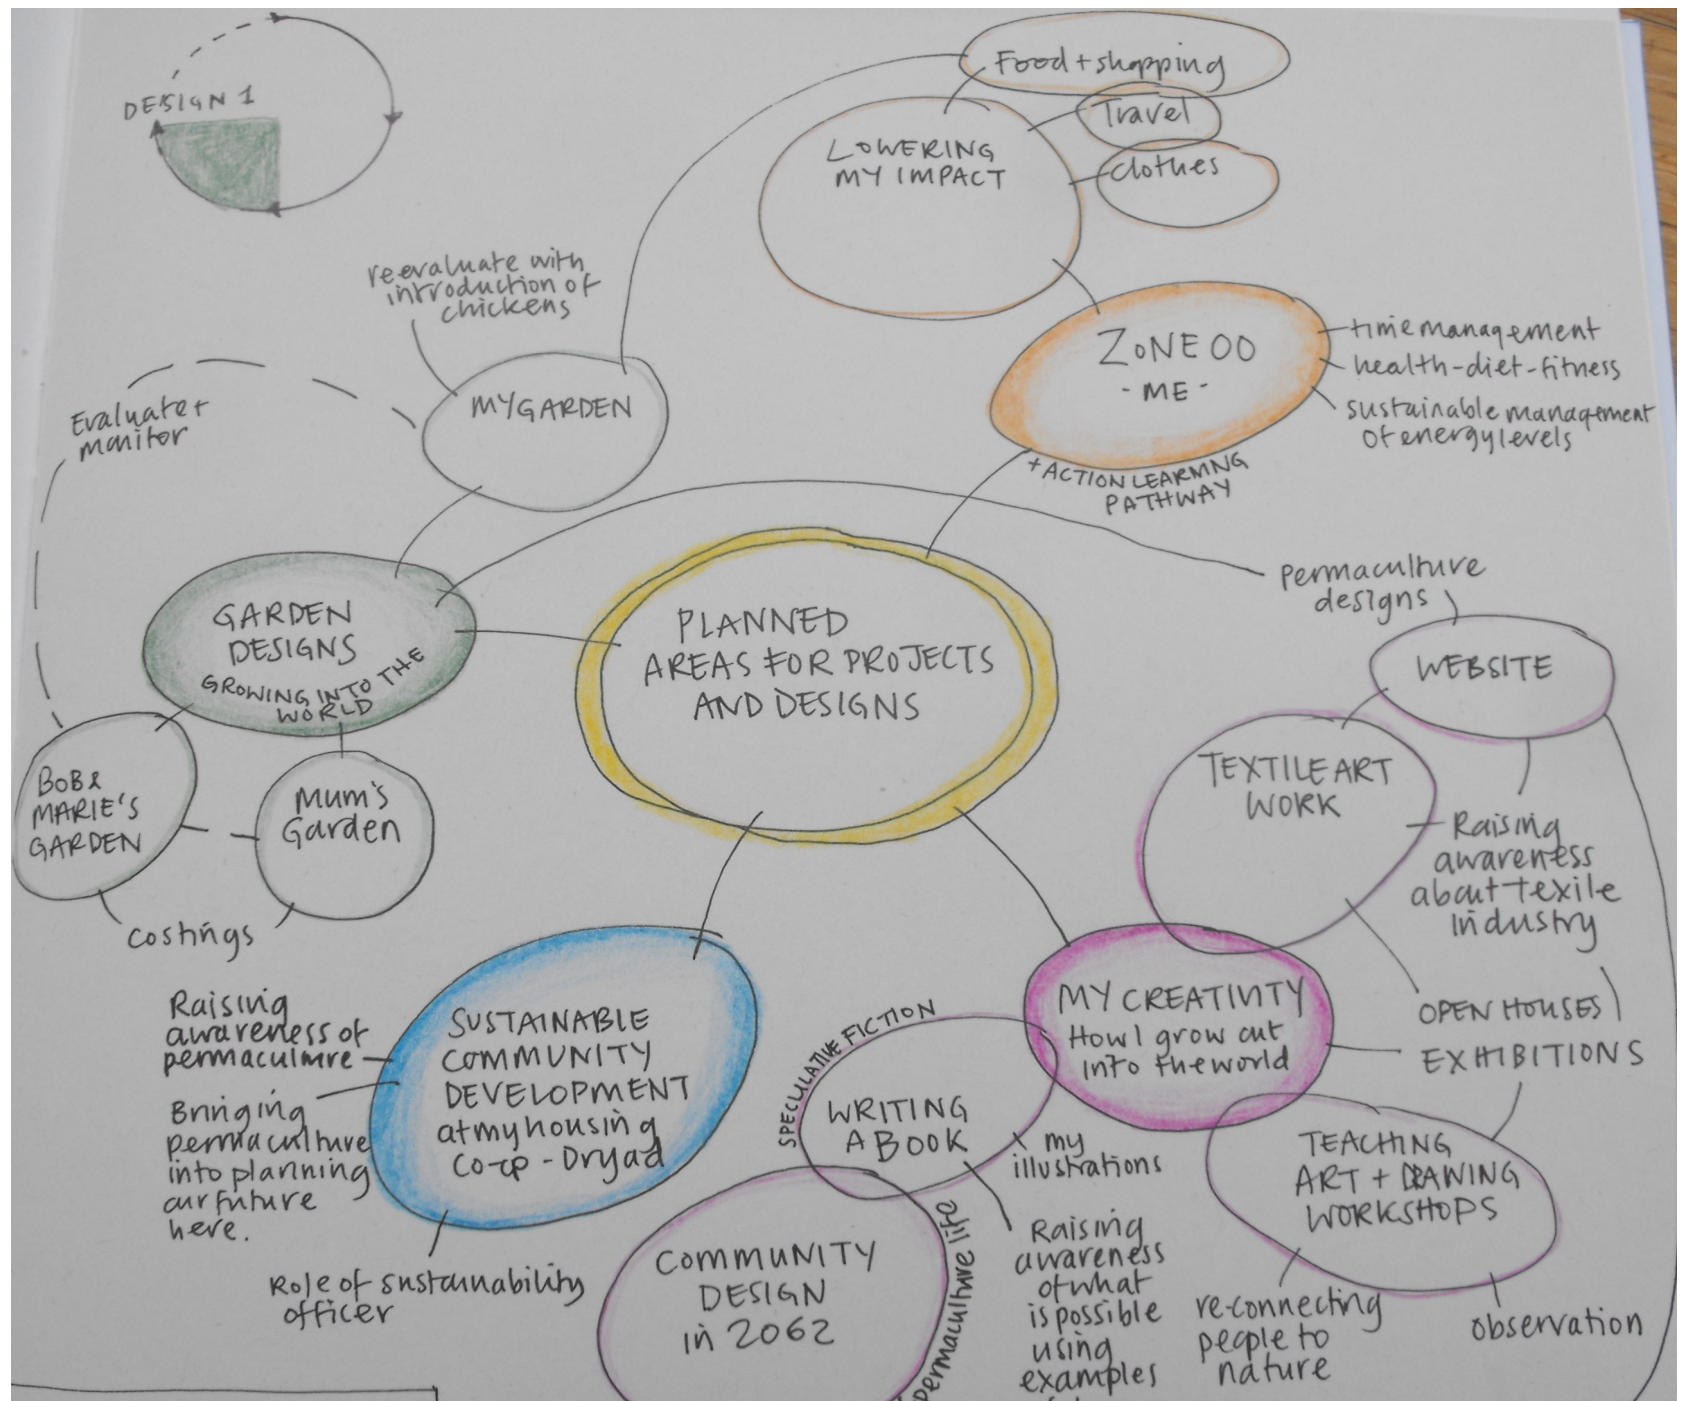 DESIGN 1
Food + shopping
Travel
clothes
LOWERING
MY IMPACT
reevaluate with
introduction of
chickens
ZONE 00
- ME -
time management
health-diet-fitness
sustainable management
of energy levels
+ ACTION LEARNING
PATHWAY
MY GARDEN
Evaluate +
monitor
GARDEN
DESIGNS
GROWING INTO THE
WORLD
PLANNED
AREAS FOR PROJECTS
AND DESIGNS
permaculture
designs
WEBSITE
BOB &
MARIE'S
GARDEN
Mum's
Garden
costings
TEXTILE ART
WORK
Raising
awareness
about texile
Industry
OPEN HOUSES
EXHIBITIONS
MY CREATIVITY
How I grow out
into the world
Raising
awareness of
permaculture
Bringing
permaculture
into planning
our future
here.
SUSTAINABLE
COMMUNITY
DEVELOPMENT
at my housing
co-op - Dryad
Role of sustainability
officer
SPECULATIVE FICTION
WRITING
A BOOK
my
illustrations
COMMUNITY
DESIGN
in 2062
permaculture life
Raising
awareness
of what
is possible
using
examples
TEACHING
ART + DRAWING
WORKSHOPS
re-connecting
people to
nature
observation